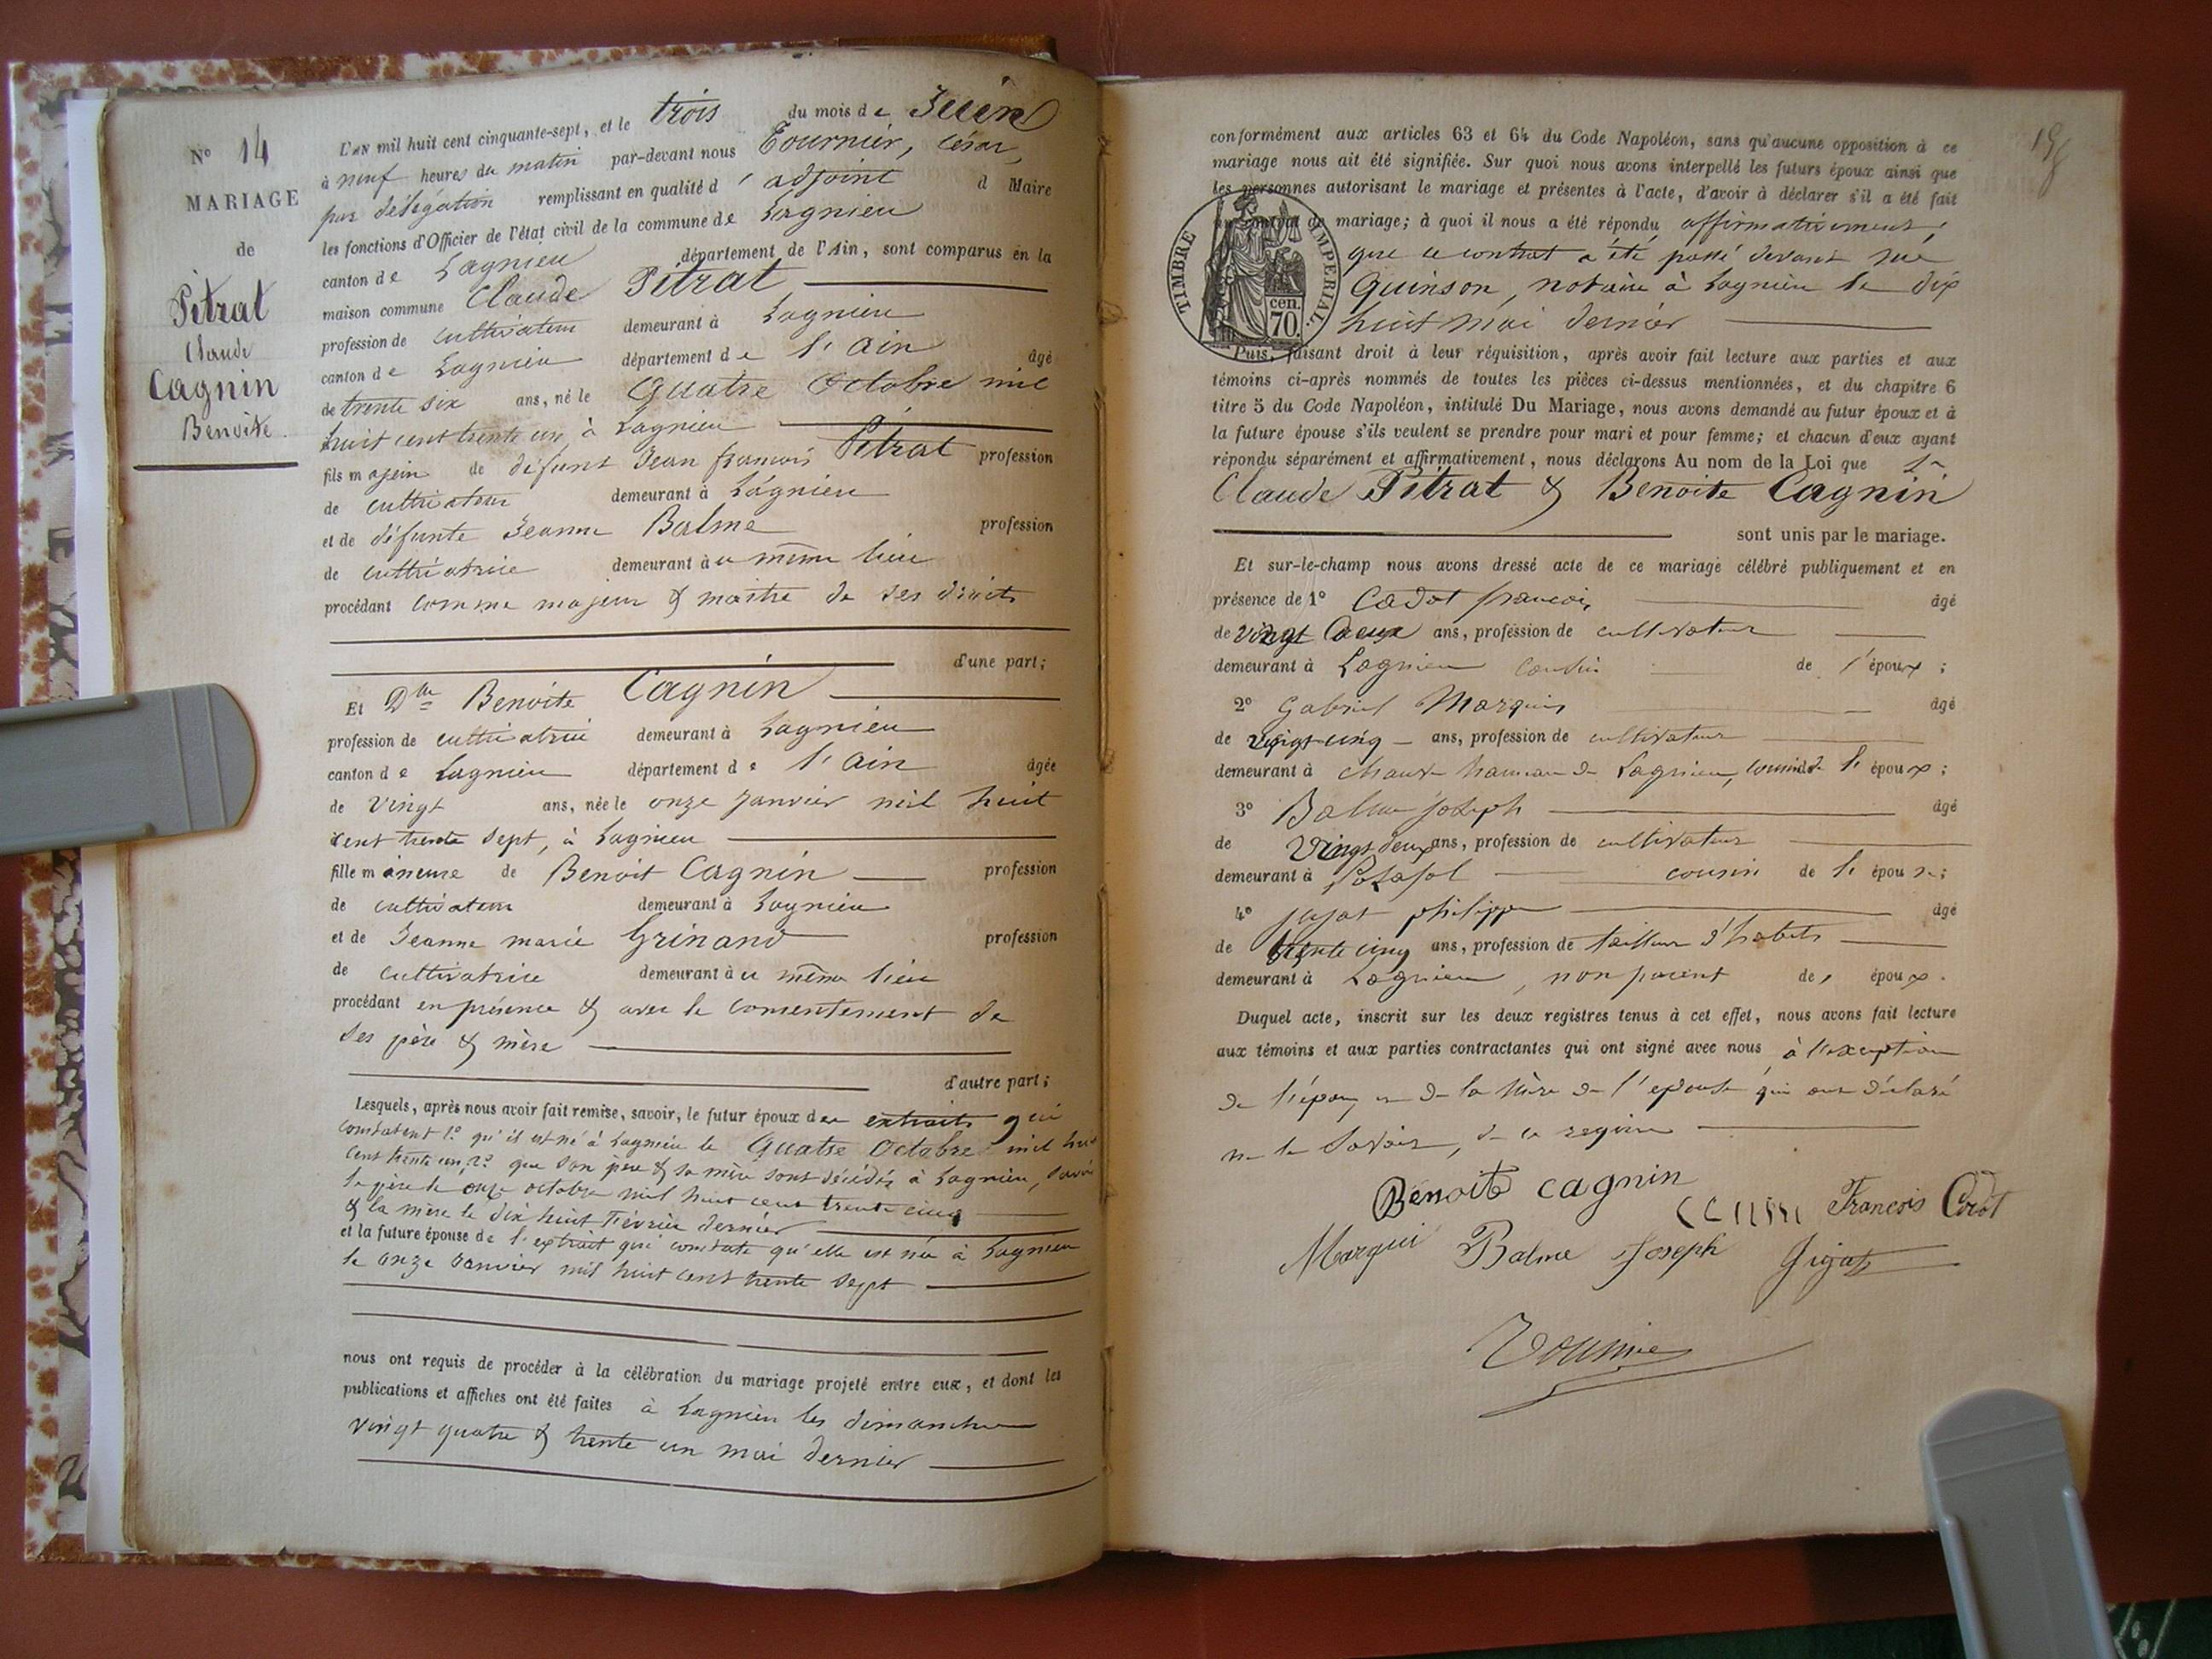 N° 14
MARIAGE
de
Pitrat
Claude
Cagnin
Benoite
L'AN mil huit cent cinquante-sept, et le trois du mois de Juin
à neuf heures du matin par-devant nous Tournier, césar,
par délégation remplissant en qualité d' adjoint d Maire
les fonctions d'Officier de l'état civil de la commune de Lagnieu
canton de Lagnieu département de l'Ain, sont comparus en la
maison commune Claude Pitrat
profession de cultivateur demeurant à Lagnieu
canton de Lagnieu département de l'Ain âgé
de trente six ans, né le Quatre Octobre mil
huit cent trente un, à Lagnieu
fils majeur de défunt Jean francois Pitrat profession
de cultivateur demeurant à Lagnieu
et de défunte Jeanne Balme profession
de cultivatrice demeurant à u même lieu
procédant comme majeur & maitre de ses droits
d'une part;
Et Dlle Benoite Cagnin
profession de cultivatrice demeurant à Lagnieu
canton de Lagnieu département de l'Ain âgée
de vingt ans, née le onze janvier mil huit
cent trente sept, à Lagnieu
fille mineure de Benoit Cagnin profession
de cultivateur demeurant à Lagnieu
et de Jeanne marie Grinand profession
de cultivatrice demeurant à u même lieu
procédant en présence & avec le consentement de
ses père & mère
d'autre part;
Lesquels, après nous avoir fait remise, savoir, le futur époux des extraits qui
constatent 1° qu'il est né à Lagnieu le Quatre Octobre mil huit
cent trente un, 2° que son père & sa mère sont décédés à Lagnieu, savoir
le père le onze octobre mil huit cent trente cinq
& la mère le dix huit Février dernier
et la future épouse de l'extrait qui constate qu'elle est née à Lagnieu
le onze Janvier mil huit cent trente sept
nous ont requis de procéder à la célébration du mariage projeté entre eux, et dont les
publications et affiches ont été faites à Lagnieu les dimanche
vingt quatre & trente un mai dernier
conformément aux articles 63 et 64 du Code Napoléon, sans qu'aucune opposition à ce
mariage nous ait été signifiée. Sur quoi nous avons interpellé les futurs époux ainsi que
les personnes autorisant le mariage et présentes à l'acte, d'avoir à déclarer s'il a été fait
un contrat de mariage; à quoi il nous a été répondu affirmativement,
que ce contrat a été passé devant me
Quinson, notaire à Lagnieu le dix
huit mai dernier
TIMBRE IMPERIAL.
cen.
70.
Puis, faisant droit à leur réquisition, après avoir fait lecture aux parties et aux
témoins ci-après nommés de toutes les pièces ci-dessus mentionnées, et du chapitre 6
titre 5 du Code Napoléon, intitulé Du Mariage, nous avons demandé au futur époux et à
la future épouse s'ils veulent se prendre pour mari et pour femme; et chacun d'eux ayant
répondu séparément et affirmativement, nous déclarons Au nom de la Loi que
Claude Pitrat & Benoite Cagnin
sont unis par le mariage.
Et sur-le-champ nous avons dressé acte de ce mariage célébré publiquement et en
présence de 1° Cadot françois âgé
de vingt deux ans, profession de cultivateur
demeurant à Lagnieu cousin de l'époux;
2° Gabriel Marquis âgé
de vingt cinq ans, profession de cultivateur
demeurant à hameau de Lagnieu, cousin de l'époux;
3° Balme joseph âgé
de Vingt deux ans, profession de cultivateur
demeurant à cousin de l'époux;
4° philippe âgé
de trente cinq ans, profession de tailleur d'habits
demeurant à Lagnieu, non parent des époux.
Duquel acte, inscrit sur les deux registres tenus à cet effet, nous avons fait lecture
aux témoins et aux parties contractantes qui ont signé avec nous à l'exception
de l'époux et de la Mère de l'épouse qui ont déclaré
ne le savoir, de ce requis
Benoite cagnin
Francois Cadot
Marqui Balme Joseph Gigat
Tournier